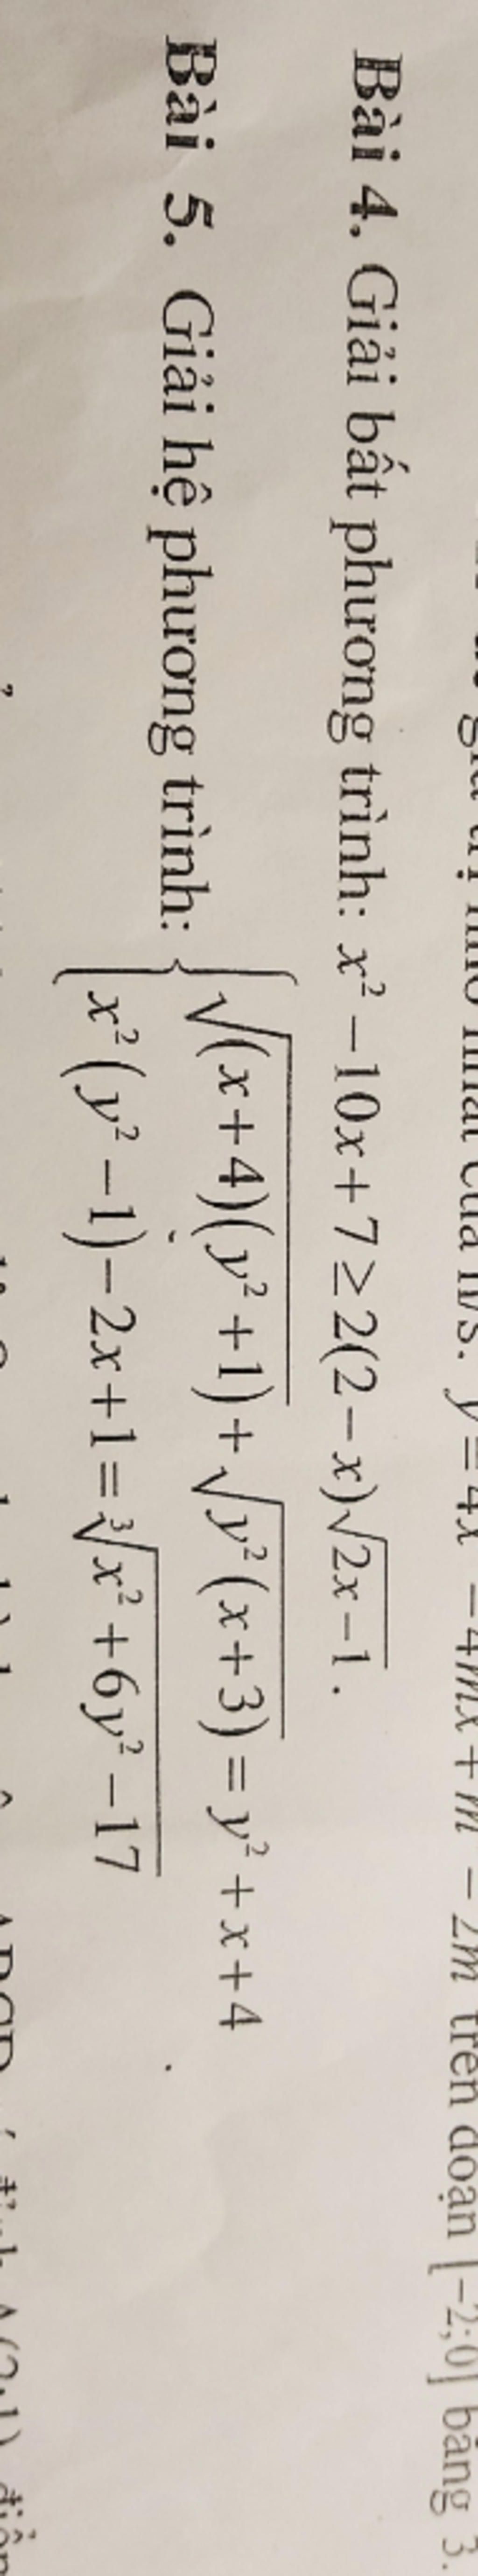 giá trị nhỏ nhất của h/s. y = 4x − 4mx + m − 2m trên đoạn [−2;0] bằng 3.
Bài 4. Giải bất phương trình: x² − 10x + 7 ≥ 2(2 − x)√(2x−1).
Bài 5. Giải hệ phương trình: { √((x+4)(y²+1)) + √(y²(x+3)) = y² + x + 4
x²(y² − 1) − 2x + 1 = ∛(x² + 6y² − 17)